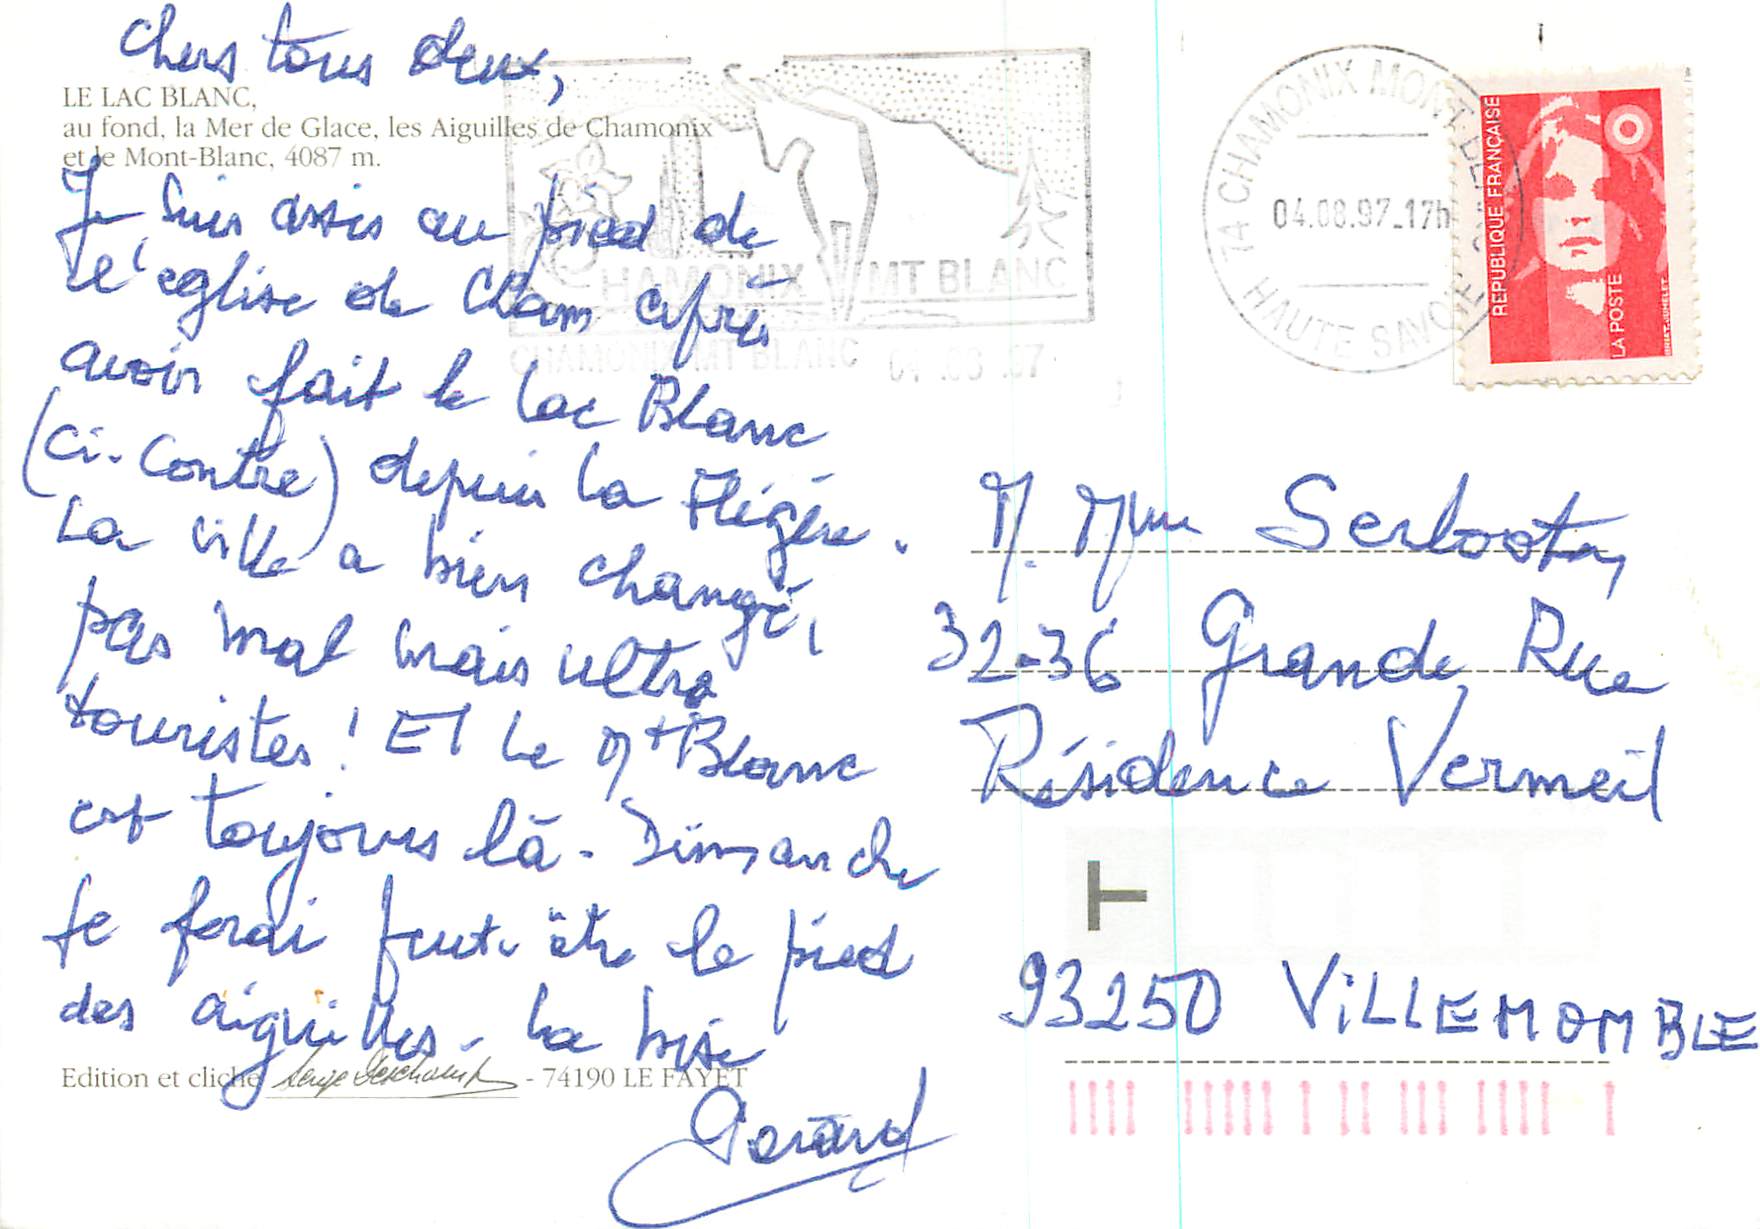 Chers tous deux,
LE LAC BLANC,
au fond, la Mer de Glace, les Aiguilles de Chamonix
et le Mont-Blanc, 4087 m.
Je suis assis au pied de
l'eglise de Cham après
avoir fait le lac Blanc
(ci-contre) depuis la Flégère.
La ville a bien changé,
pas mal mais ultra
touristes! Et le Mt Blanc
est toujours là - Dimanche
je ferai peut-être le pied
des aiguilles - La bise
Gérard
Edition et cliché Serge Deschamps - 74190 LE FAYET
CHAMONIX MT BLANC
CHAMONIX MT BLANC 04.08.97
74 CHAMONIX MONT-BLANC
04.08.97-17h
HAUTE SAVOIE
REPUBLIQUE FRANÇAISE
LA POSTE
BRIAT-JUMELET
M. Mme
32-36 Grande Rue
Résidence Vermeil
T
93250 ViLLEMOMBLE